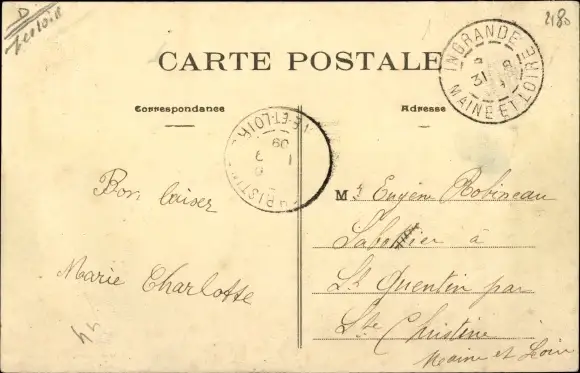 D
2180
CARTE POSTALE
INGRANDE
31
MAINE ET LOIRE
Correspondance
Adresse
E-ET-LOIR
09
Bon baiser
Marie Charlotte
44
Mr Eugène Robineau
à
St Quentin par
Ste Christine
Maine et Loire